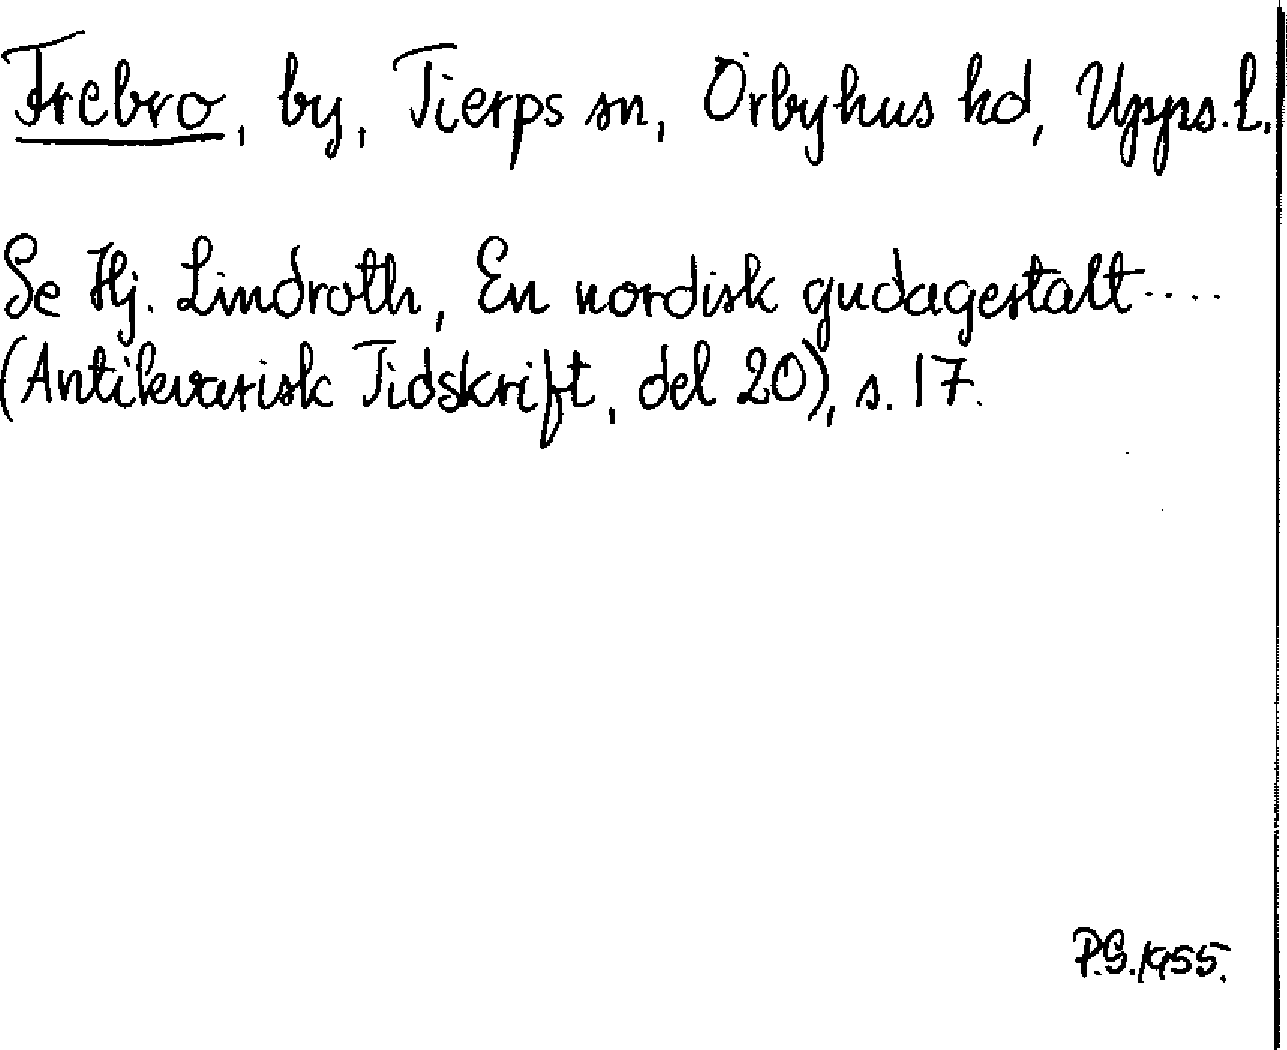 Frebro, by, Tierps sn, Örbyhus hd, Upps. l.
Se Hj. Lindroth, En nordisk gudagestalt....
(Antikvarisk Tidskrift, del 20), s. 17.
P.G. 1955.